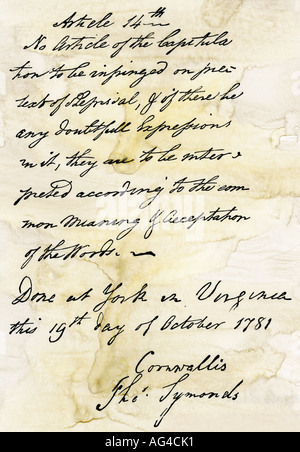 Article 14th
No Article of the Capitula
tion to be infringed on pre
text of Reprisal, & if there be
any doubtfull Expressions
in it, they are to be inter
preted according to the com
mon Meaning & Acceptation
of the Words.
Done at York in Virginia
this 19th day of October 1781
Cornwallis
Thos. Symonds
alamy stock photo
AG4CK1
www.alamy.com